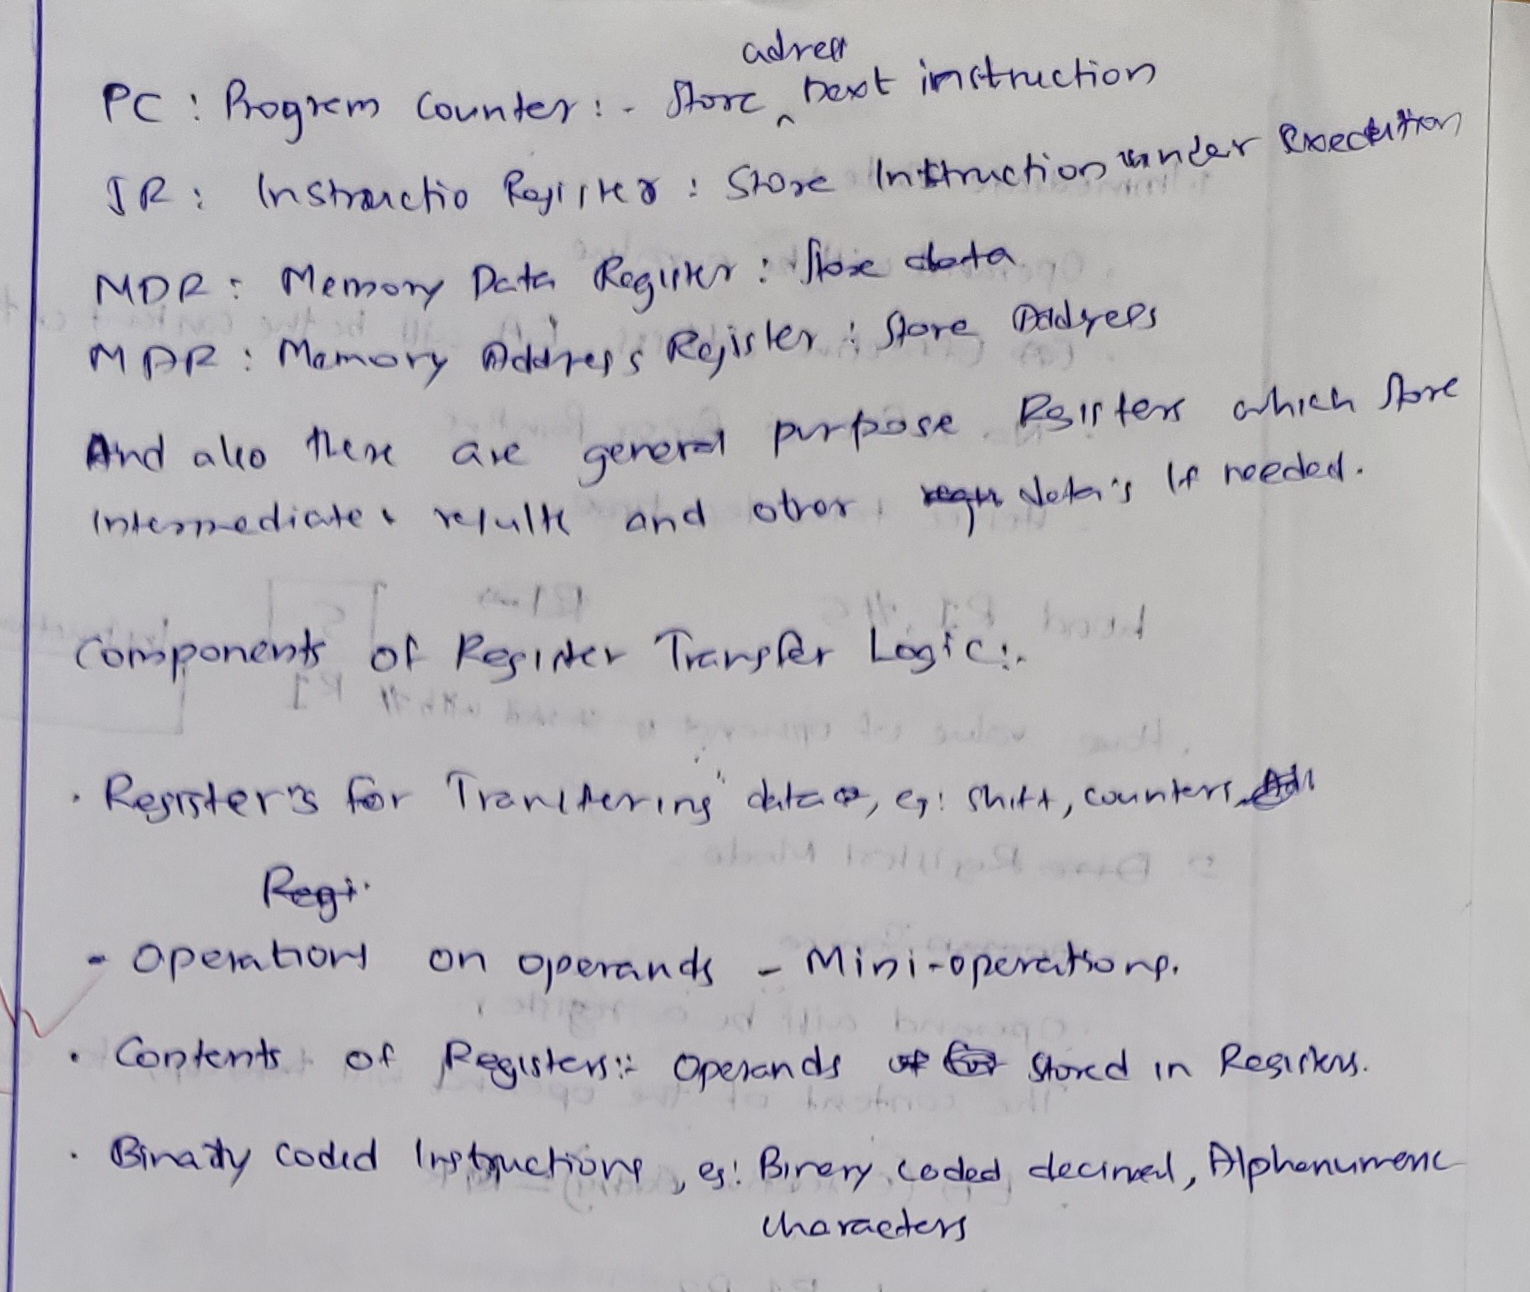 PC : Program Counter :- Store adress next instruction
IR : Instructio Register : Store Instruction under Execution
MDR : Memory Data Register : Store data
MAR : Memory Address Register : Store Address
And also there are general purpose Rgisters which store
Intermediate results and other data's if needed.
Components of Register Transfer Logic :-
. Register's for Transfering data, eg: shift, counters
Regi.
- Operations on operands - Mini-operations.
. Contents of Registers :- Operands stored in Registers.
. Binary coded Instructions, eg: Binary coded decimal, Alphanumeric
characters